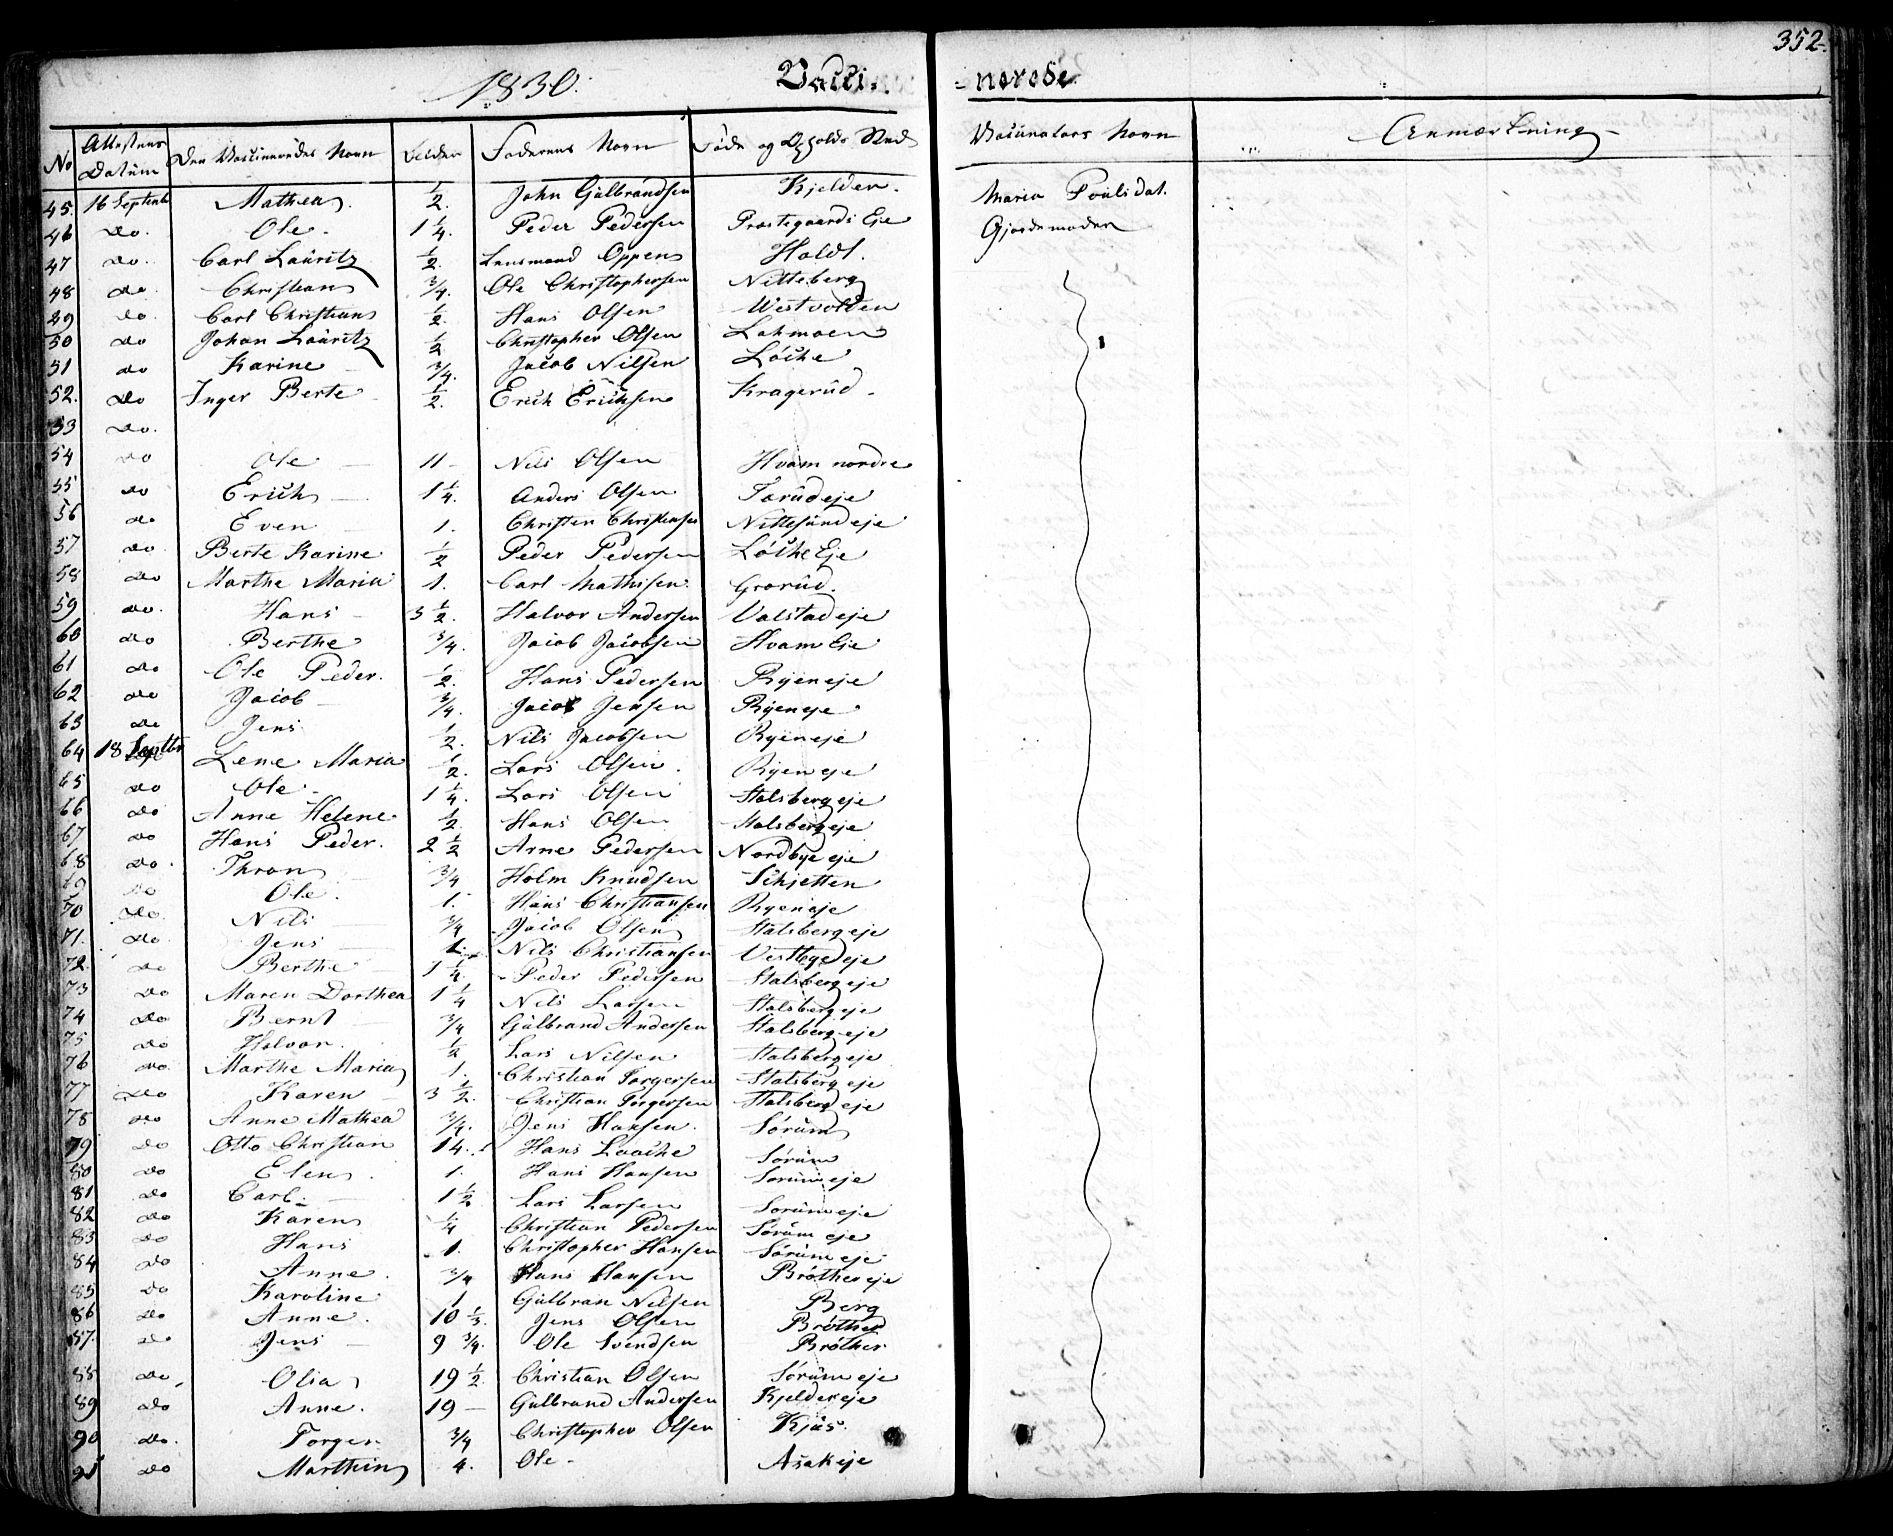 352.
1830. Vacci- nerede
No Attestens Datum Den Vaccineredes Navn Alder Faderens Navn Føde og Opholds Sted Vaccinators Navn Anmærkning
45. 16 Septemb Mathea. 1/2. John Gulbrandsen Kjelder. Maria Poulsdat.
46 do. Ole. 1 1/4. Peder Pedersen Præstegaards Eje Gjordemoder
47 do. Carl Lauritz 1/2. Lensmand Oppen Holdt.
48 do. Christian 3/4. Ole Christophersen Nitteberg
49 do. Carl Christian 1/2. Hans Olsen Westvolden
50 do Johan Lauritz 1/2 Christopher Olsen Lahmoen
51 do Karine 3/4. Jacob Nilsen Løche
52. do Inger Berte 1/2. Erich Erichsen Kragerud.
53 do.
54 do Ole 11 Nils Olsen Hvam nordre
55 do Erich 1 1/4. Anders Olsen Torudeje
56 do Even 1. Christen Christensen Nittesundeje
57 do. Berte Karine 1/2 Peder Pedersen Løche Eje
58 do Marthe Maria 1. Carl Mathisen Grorud.
59 do. Hans 3 1/2. Halvor Andersen Valstadeje
60 do Berthe 3/4. Jacob Jacobsen Hvam Eje
61 do Ole Peder. 1/2. Hans Pedersen Ryeneje
62 do Jacob 3/4. Jacob Jensen Ryeneje
63 do Jens 1/2. Nils Jacobsen Ryeneje
64 18 Septbr Lene Maria 1/2. Lars Olsen. Ryeneje
65 do Ole. 1 1/4. Lars Olsen Stalsbergeje
66 do Anne Helene 1/2 Hans Olsen Stalsbergeje
67 do Hans Peder. 2 1/2 Arne Pedersen Nordbye eje
68 do. Thron 3/4 Holm Knudsen Schjetten
69 do Ole. 1. Hans Christiansen Ryeneje
70 do. Nils 3/4 Jacob Olsen Stalsbergeje
71. do. Jens 1. Nils Christiansen
72. do Berthe 1 1/4. Peder Pedersen Stalsbergeje
73 do Maren Dorthea 1 1/4 Nils Larsen Stalsbergeje
74 do Bernt 3/4 Gulbrand Andersen Stalsbergeje
75 do Halvor. 1/2 Lars Nilsen Stalsbergeje
76 do. Marthe Maria 1. Christian Torgersen Stalsbergeje
77 do Karen 3 1/2. Christian Torgersen Stalsbergeje
78 do Anne Mathea 3/4. Jens Hansen. Sørum
79 do Otto Christian 14. Hans Laache Sørum
80 do Elen. 1. Hans Hansen Sørumeje
81 do Carl. 1 1/2 Lars Larsen Sørumeje
82 do Karen 1/4 Christian Pedersen Sørumeje
83 do Hans 1. Christopher Hansen Sørumeje
84 do Anne. 3/4 Hans Hansen Brøthereje
85 do Karoline 1 Gulbran Nilsen Berg
86 do Anne. 10 1/2. Jens Olsen Brøther
87. do Jens 9 3/4. Ole Svendsen Brøther
88 do, Olia 19 1/2. Christian Olsen Sørumeje
89 do Anne. 19 Gulbrand Andersen Kjeldereje
90 do. Torger 3/4 Christopher Olsen Kjus.
91 do Marthin 4. Ole Asakeje